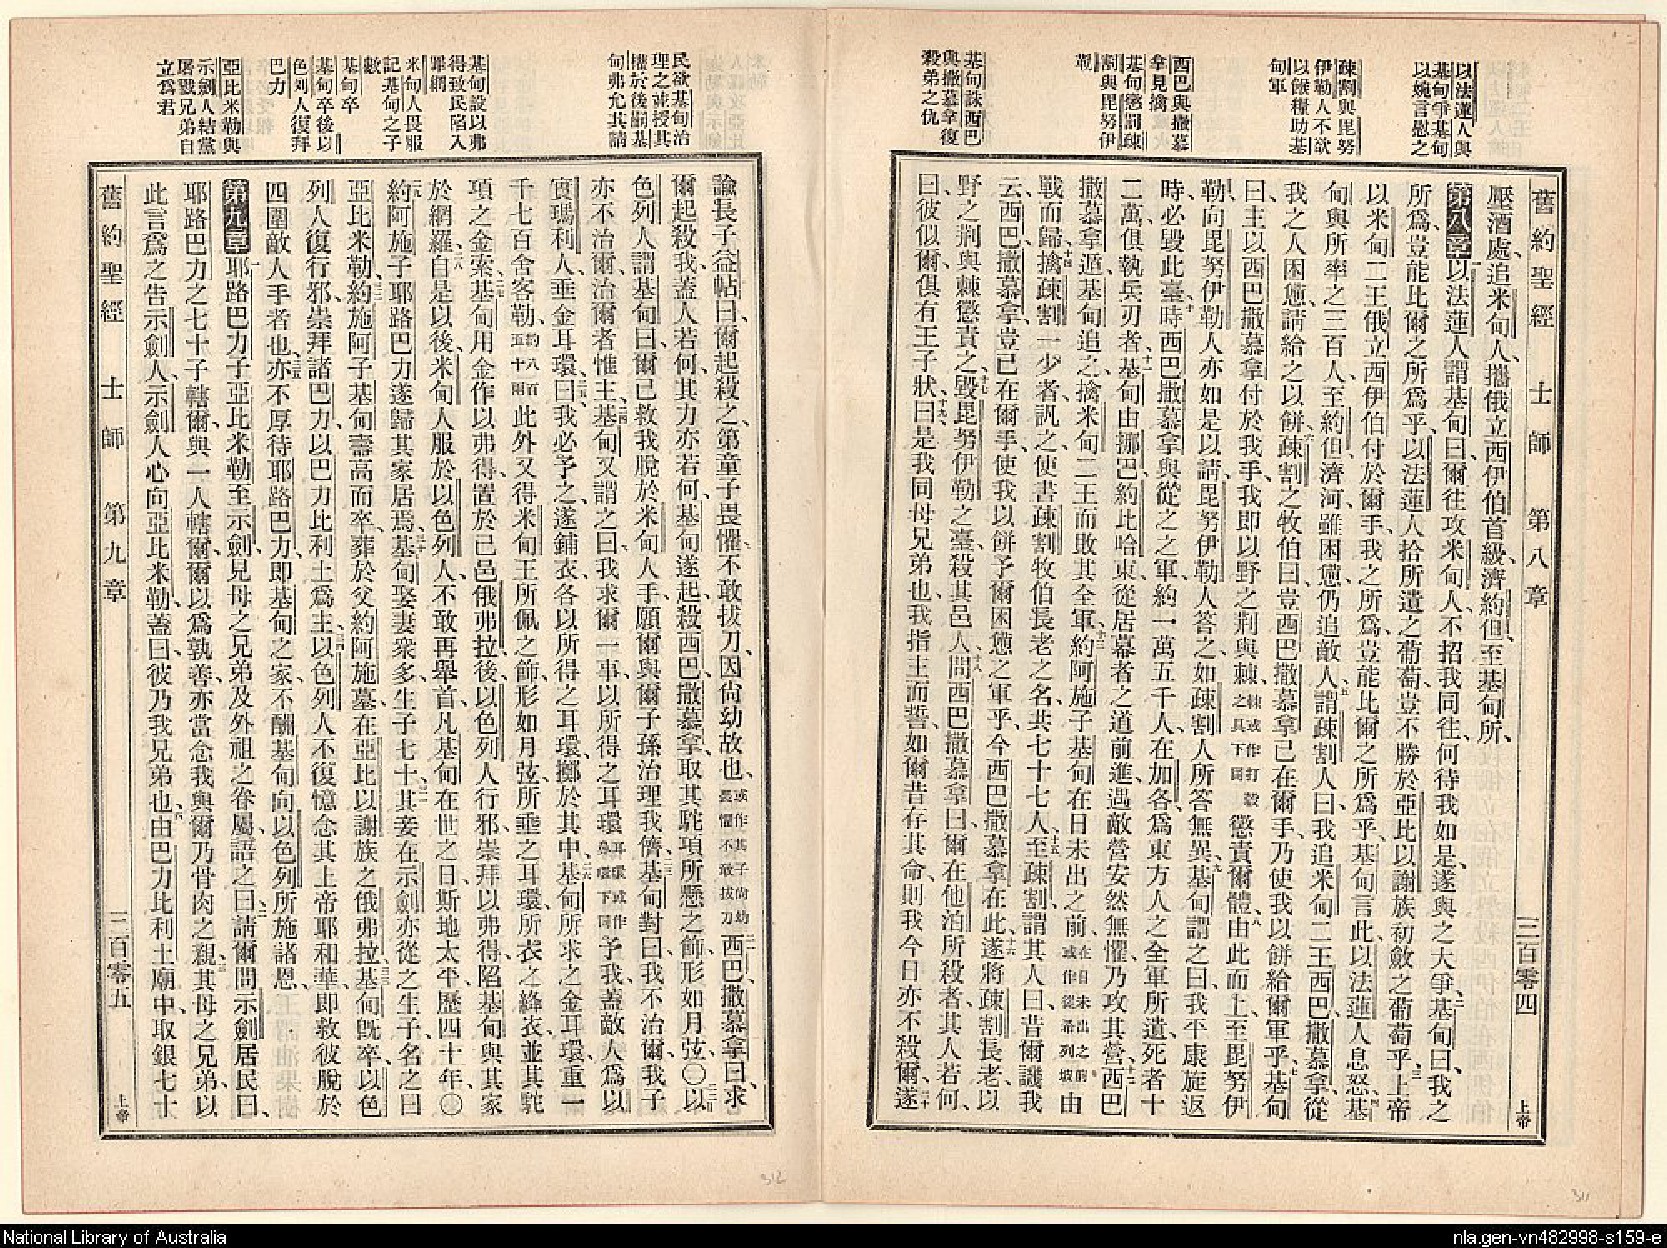 舊約聖經　士師　第八章　三百零四　上帝
以法蓮人與
基甸爭基甸
以婉言慰之
疎割與毘努
伊勒人不欲
以餱糧助基
甸軍
西巴與撒慕
拿見擒
基甸懲罰疎
割與毘努伊
勒
基甸誅西巴
與撒慕拿復
殺弟之仇
壓酒處、追米甸人、攜俄立西伊伯首級、濟約但、至基甸所、
第八章 以法蓮人謂基甸曰、爾往攻米甸人、不招我同往、何待我如是、遂與之大爭、基甸曰、我之
所爲、豈能比爾之所爲乎、以法蓮人拾所遺之葡萄、豈不勝於亞比以謝族初斂之葡萄乎、上帝
以米甸二王俄立西伊伯付於爾手、我之所爲、豈能比爾之所爲乎、基甸言此、以法蓮人息怒、基
甸與所率之三百人至約但濟河、雖困憊、仍追敵人、謂疎割人曰、我追米甸二王西巴撒慕拿、從
我之人困憊、請給之以餅、疎割之牧伯曰、豈西巴撒慕拿已在爾手、乃使我以餅給爾軍乎、基甸
曰、主以西巴撒慕拿付於我手、我即以野之荆與棘懲責爾體、由此而上、至毘努伊
勒、向毘努伊勒人亦如是以請、毘努伊勒人答之、如疎割人所答無異、基甸謂之曰、我平康旋返
時、必毀此臺、時西巴撒慕拿與從之之軍、約一萬五千人在加各、爲東方人之全軍所遺、死者十
二萬、俱執兵刃者、基甸由挪巴約比哈東、從居幕者之道前進、遇敵營安然無懼、乃攻其營、西巴
撒慕拿遁、基甸追之、擒米甸二王、而敗其全軍、約阿施子基甸在日未出之前 或作在日未出之前 由
戰而歸、擒疎割一少者、訊之、使書疎割牧伯長老之名、共七十七人、至疎割、謂其人曰、昔爾譏我
云、西巴撒慕拿豈已在爾手、使我以餅予爾困憊之軍乎、今西巴撒慕拿在此、遂將疎割長老、以
野之荆與棘懲責之、毀毘努伊勒之臺、殺其邑人、問西巴撒慕拿曰、爾在他泊所殺者、其人若何、
曰、彼似爾、俱有王子狀、曰、是我同母兄弟也、我指主而誓、如爾昔存其命、則我今日亦不殺爾、遂
民欲基甸治
理之並授其
權於後嗣基
甸弗允其請
基甸設以弗
得致民陷入
罪網
米甸人畏服
記基甸之子
數
基甸卒
基甸卒後以
色列人復拜
巴力
亞比米勒與
示劍人結黨
屠戮兄弟自
立爲君
諭長子益帖曰、爾起殺之、第童子畏懼、不敢拔刀、因尚幼故也 或作其子尚幼畏懼不敢拔刀 西巴撒慕拿曰、求
爾起殺我、蓋人若何、其力亦若何、基甸遂起、殺西巴撒慕拿、取其駝項所懸之飾、形如月弦、〇以
色列人謂基甸曰、爾已救我脫於米甸人手、願爾與爾子孫治理我儕、基甸對曰、我不治爾、我子
亦不治爾、治爾者惟主、基甸又謂之曰、我求爾一事、以所得之耳環予我、蓋敵人爲以
實瑪利人、垂金耳環、曰、我必予之、遂鋪衣、各以所得之耳環擲於其中、基甸所求之金耳環、重一
千七百舍客勒 約八百五十兩 此外又得米甸王所佩之飾、形如月弦、所垂之耳環、所衣之絳衣、並其駝
項之金索、基甸用金作以弗得、置於己邑俄弗拉、後以色列人行邪、崇拜以弗得、陷基甸與其家
於網羅、自是以後、米甸人服於以色列人、不敢再舉首、凡基甸在世之日、斯地太平、歷四十年、〇
約阿施子耶路巴力遂歸其家居焉、基甸娶妻衆多、生子七十、其妾在示劍、亦從之生子、名之曰
亞比米勒、約施阿子基甸壽高而卒、葬於父約阿施墓、在亞比以謝族之俄弗拉、基甸旣卒、以色
列人復行邪、崇拜諸巴力、以巴力比利土爲主、以色列人不復憶念其上帝耶和華、即救彼脫於
四圍敵人手者也、亦不厚待耶路巴力、即基甸之家、不酬基甸向以色列所施諸恩、
第九章 耶路巴力子亞比米勒至示劍、見母之兄弟、及外祖之眷屬、語之曰、請爾問示劍居民曰、
耶路巴力之七十子轄爾、與一人轄爾、爾以爲孰善、亦當念我與爾乃骨肉之親、其母之兄弟、以
此言爲之告示劍人、示劍人心向亞比米勒、蓋曰、彼乃我兄弟也、由巴力比利土廟中取銀七十
舊約聖經　士師　第九章　三百零五　上帝
National Library of Australia
nla.gen-vn482998-s159-e